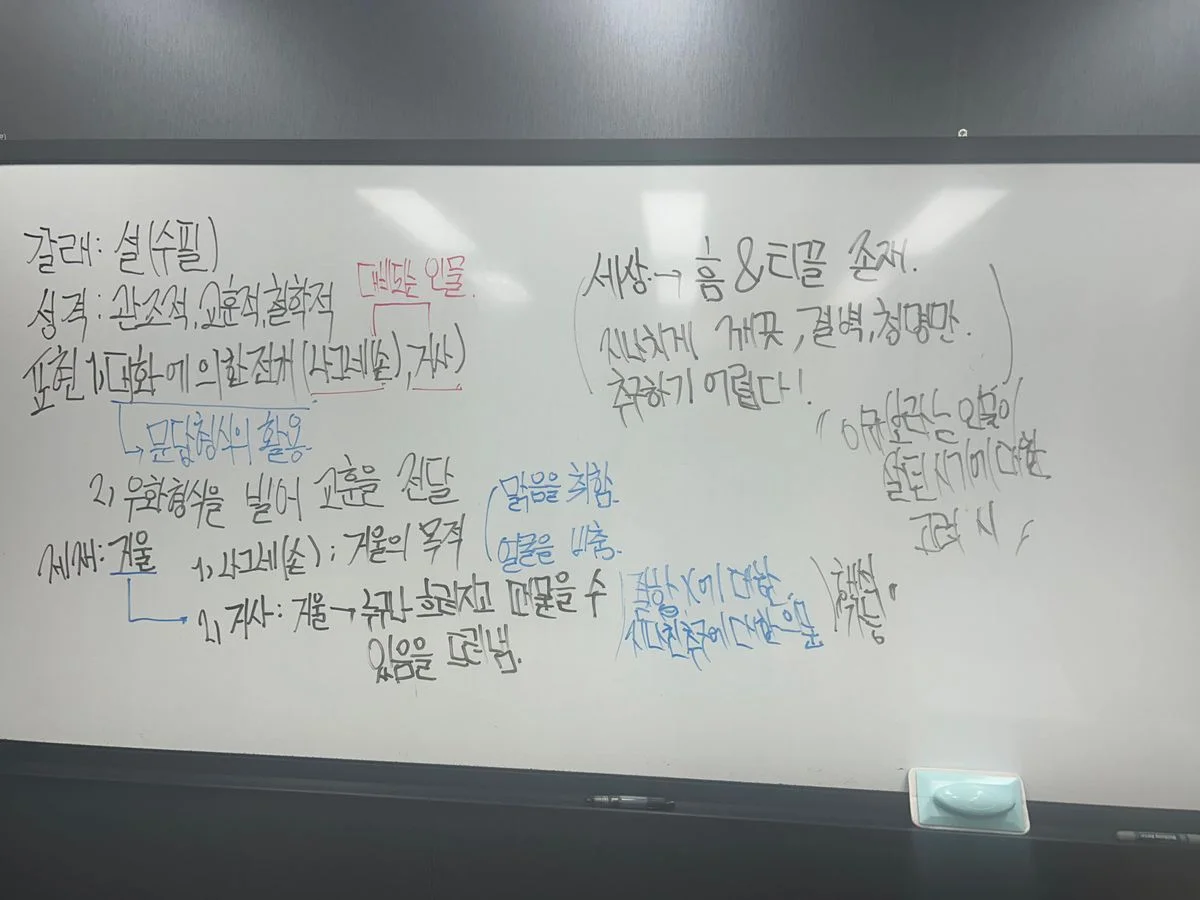 갈래: 설(수필)
성격: 관조적, 교훈적, 철학적
대비되는 인물.
표현 1) 대화에 의한 전개(나그네(손), 거사)
문답형식의 활용.
2) 우화형식을 빌어 교훈을 전달
제재: 거울 1) 나그네(손): 거울의 목적
맑음을 취함.
얼굴을 비춤.
2) 거사: 거울→ 누구나 흐려지고 때묻을 수
있음을 드러냄.
에 대한
지나친 추구에 대한 의문
세상→ 흠 & 티끌 존재.
지나치게 깨끗, 결벽, 청명만.
추구하기 어렵다!
이규보라는 인물이
살던 시기에 대한
고려 시